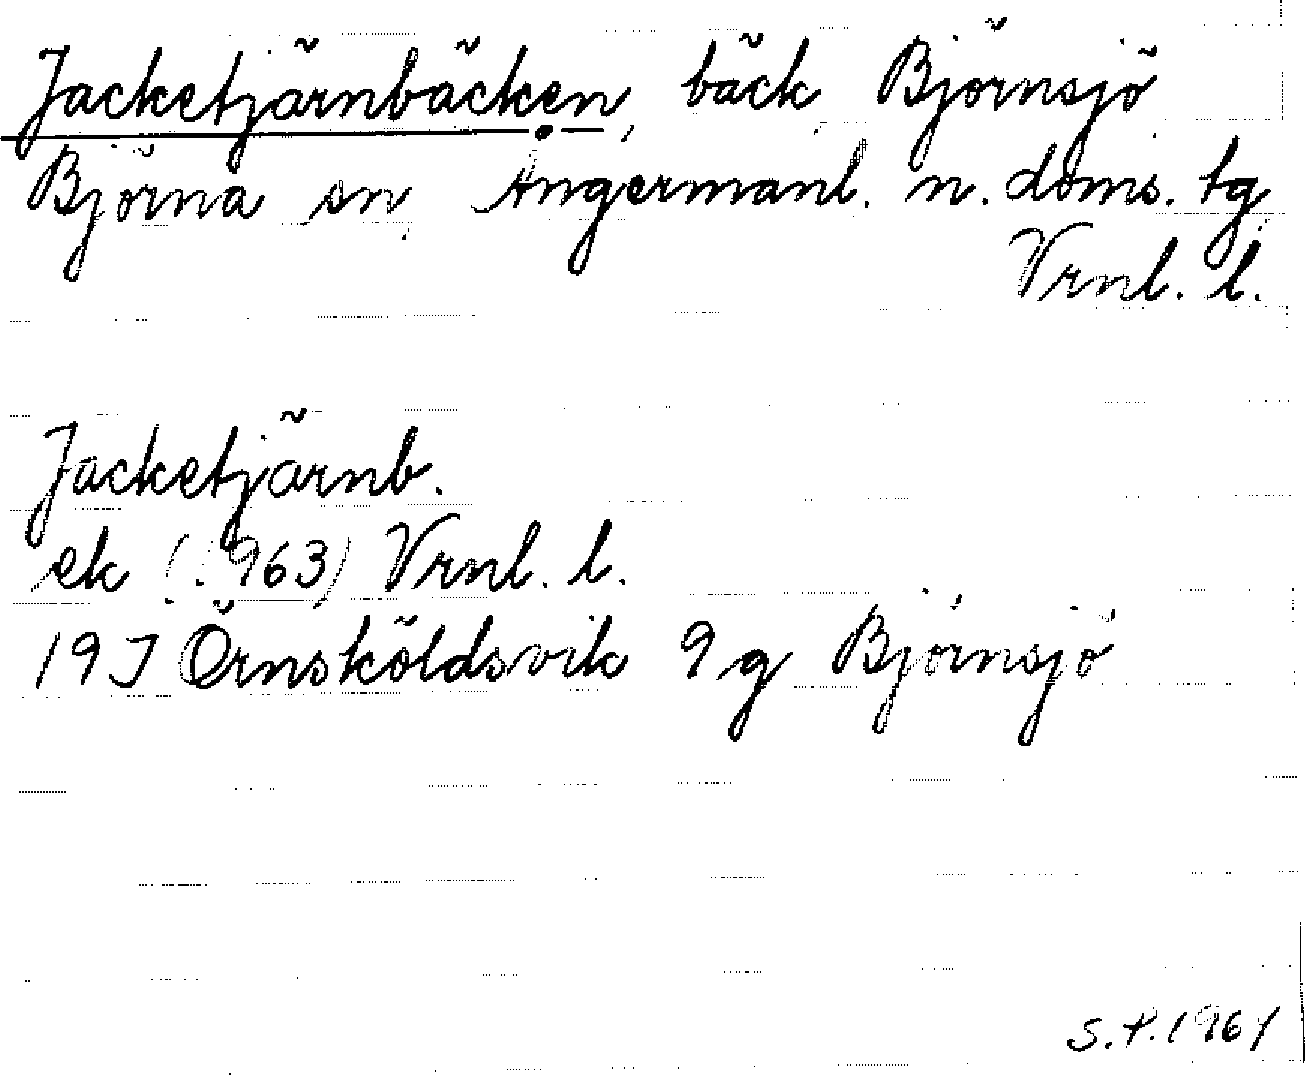 Jacketjärnbäcken, bäck Björnsjö
Björna sn, Ångermanl. n. doms. tg
Vrnl. l.
Jacketjärnb.
ek (1963) Vrnl. l.
19J Örnsköldsvik 9g Björnsjö
S.P. 1964